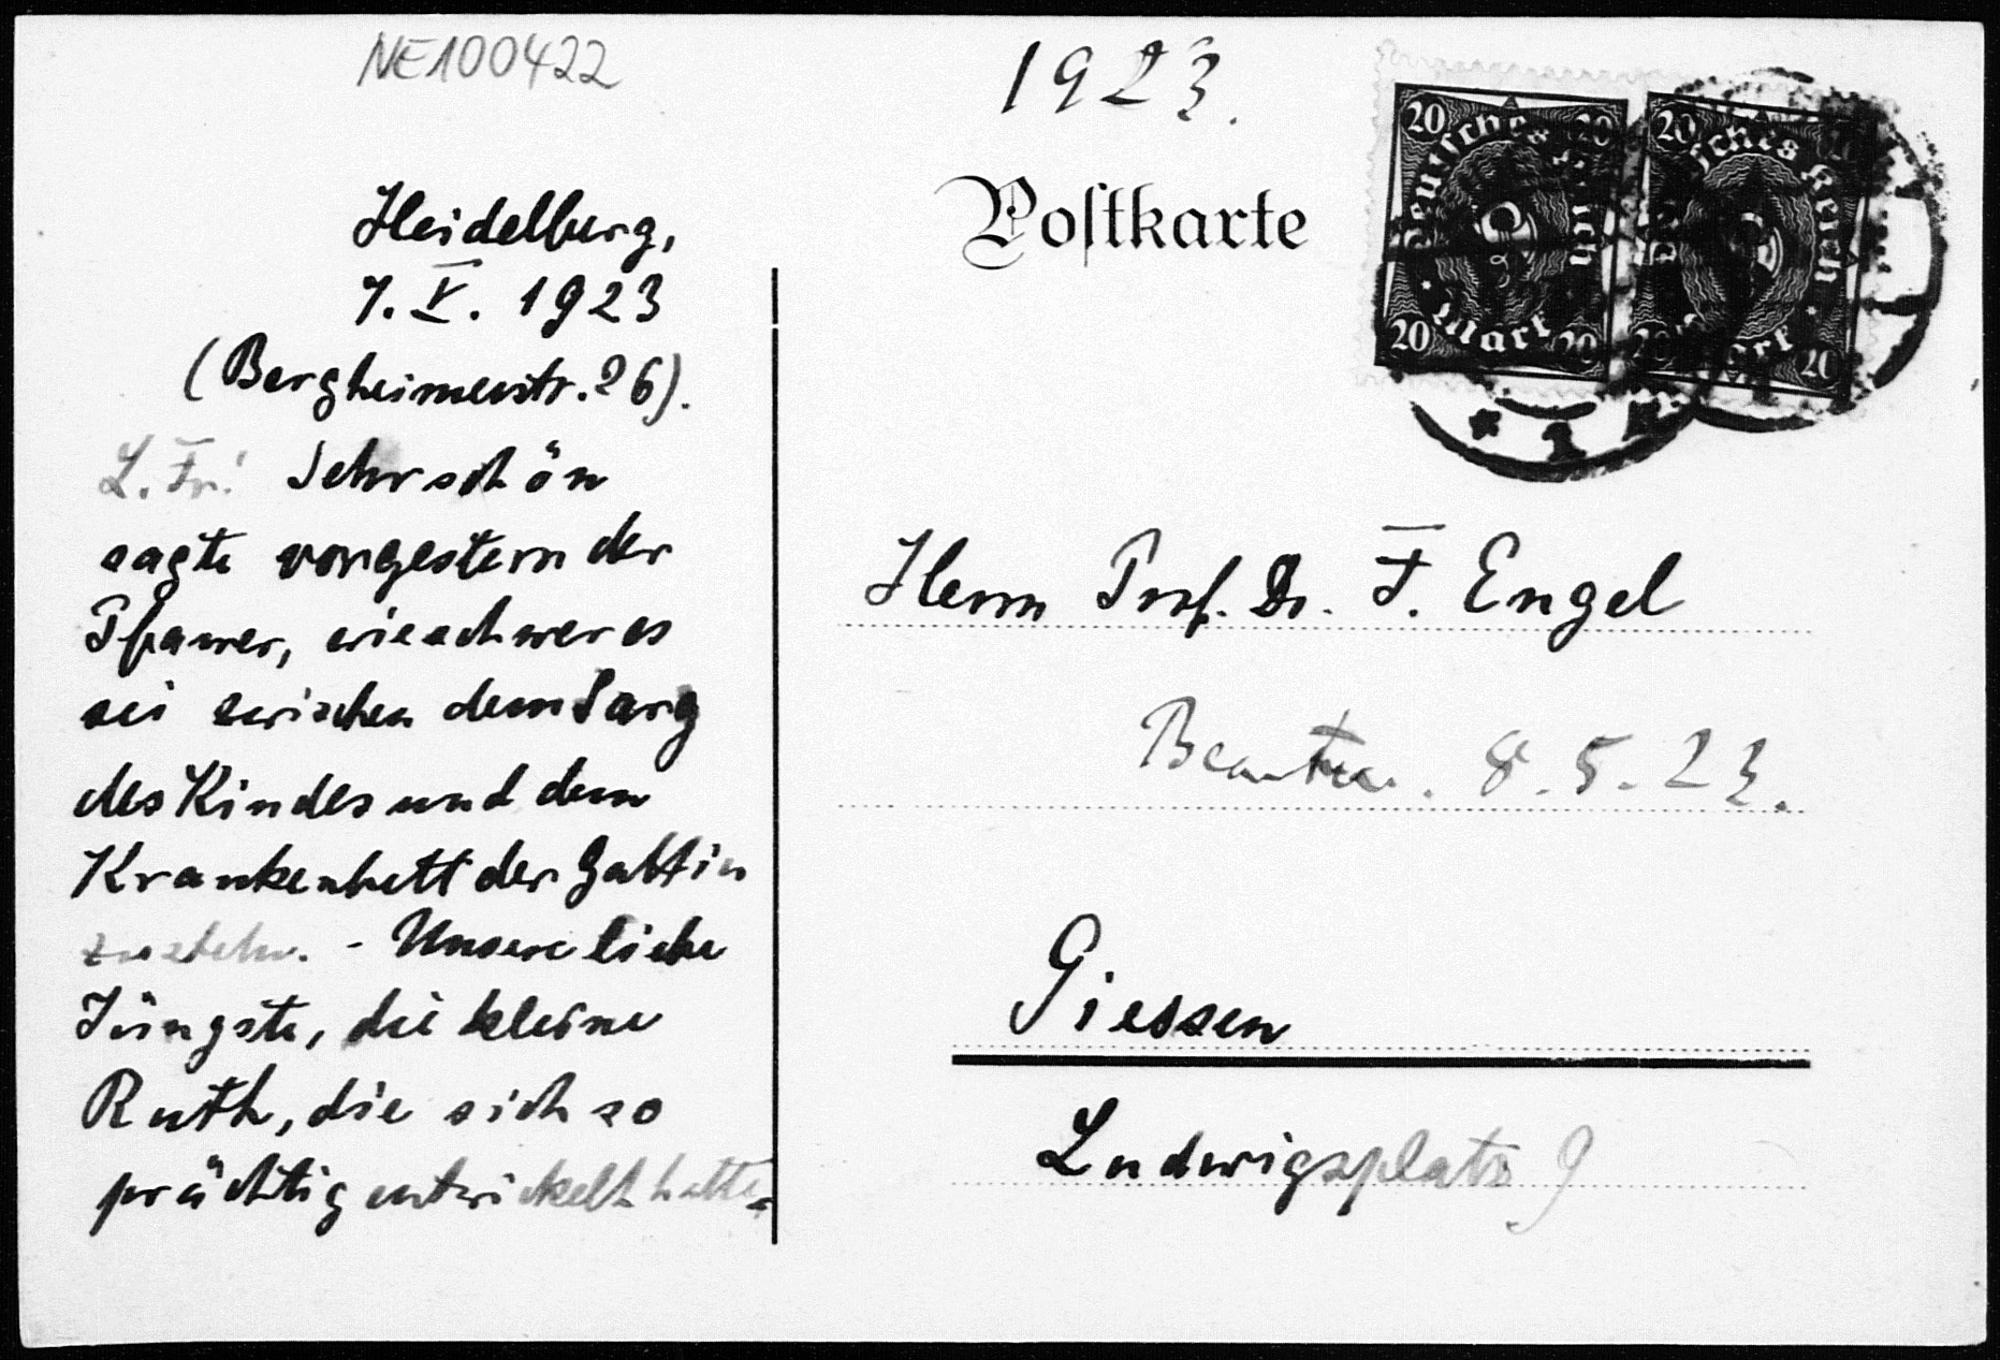 NE100422
1923.
Heidelberg,
7. V. 1923
(Bergheimerstr. 26).
L. Fr! Sehr schön
sagte vorgestern der
Pfarrer, wie schwer es
sei zwischen dem Sarg
des Kindes und dem
Krankenbett der Gattin
zu stehn. - Unsere liebe
Jüngste, die kleine
Ruth, die sich so
prächtig entwickelt hatte
Postkarte
20 Deutsches Reich 20
20 Mark 20
20 Deutsches Reich
20 Mark 20
* 1 *
Herrn Prof. Dr. F. Engel
Beantw. 8.5.23.
Giessen
Ludwigsplatz 9